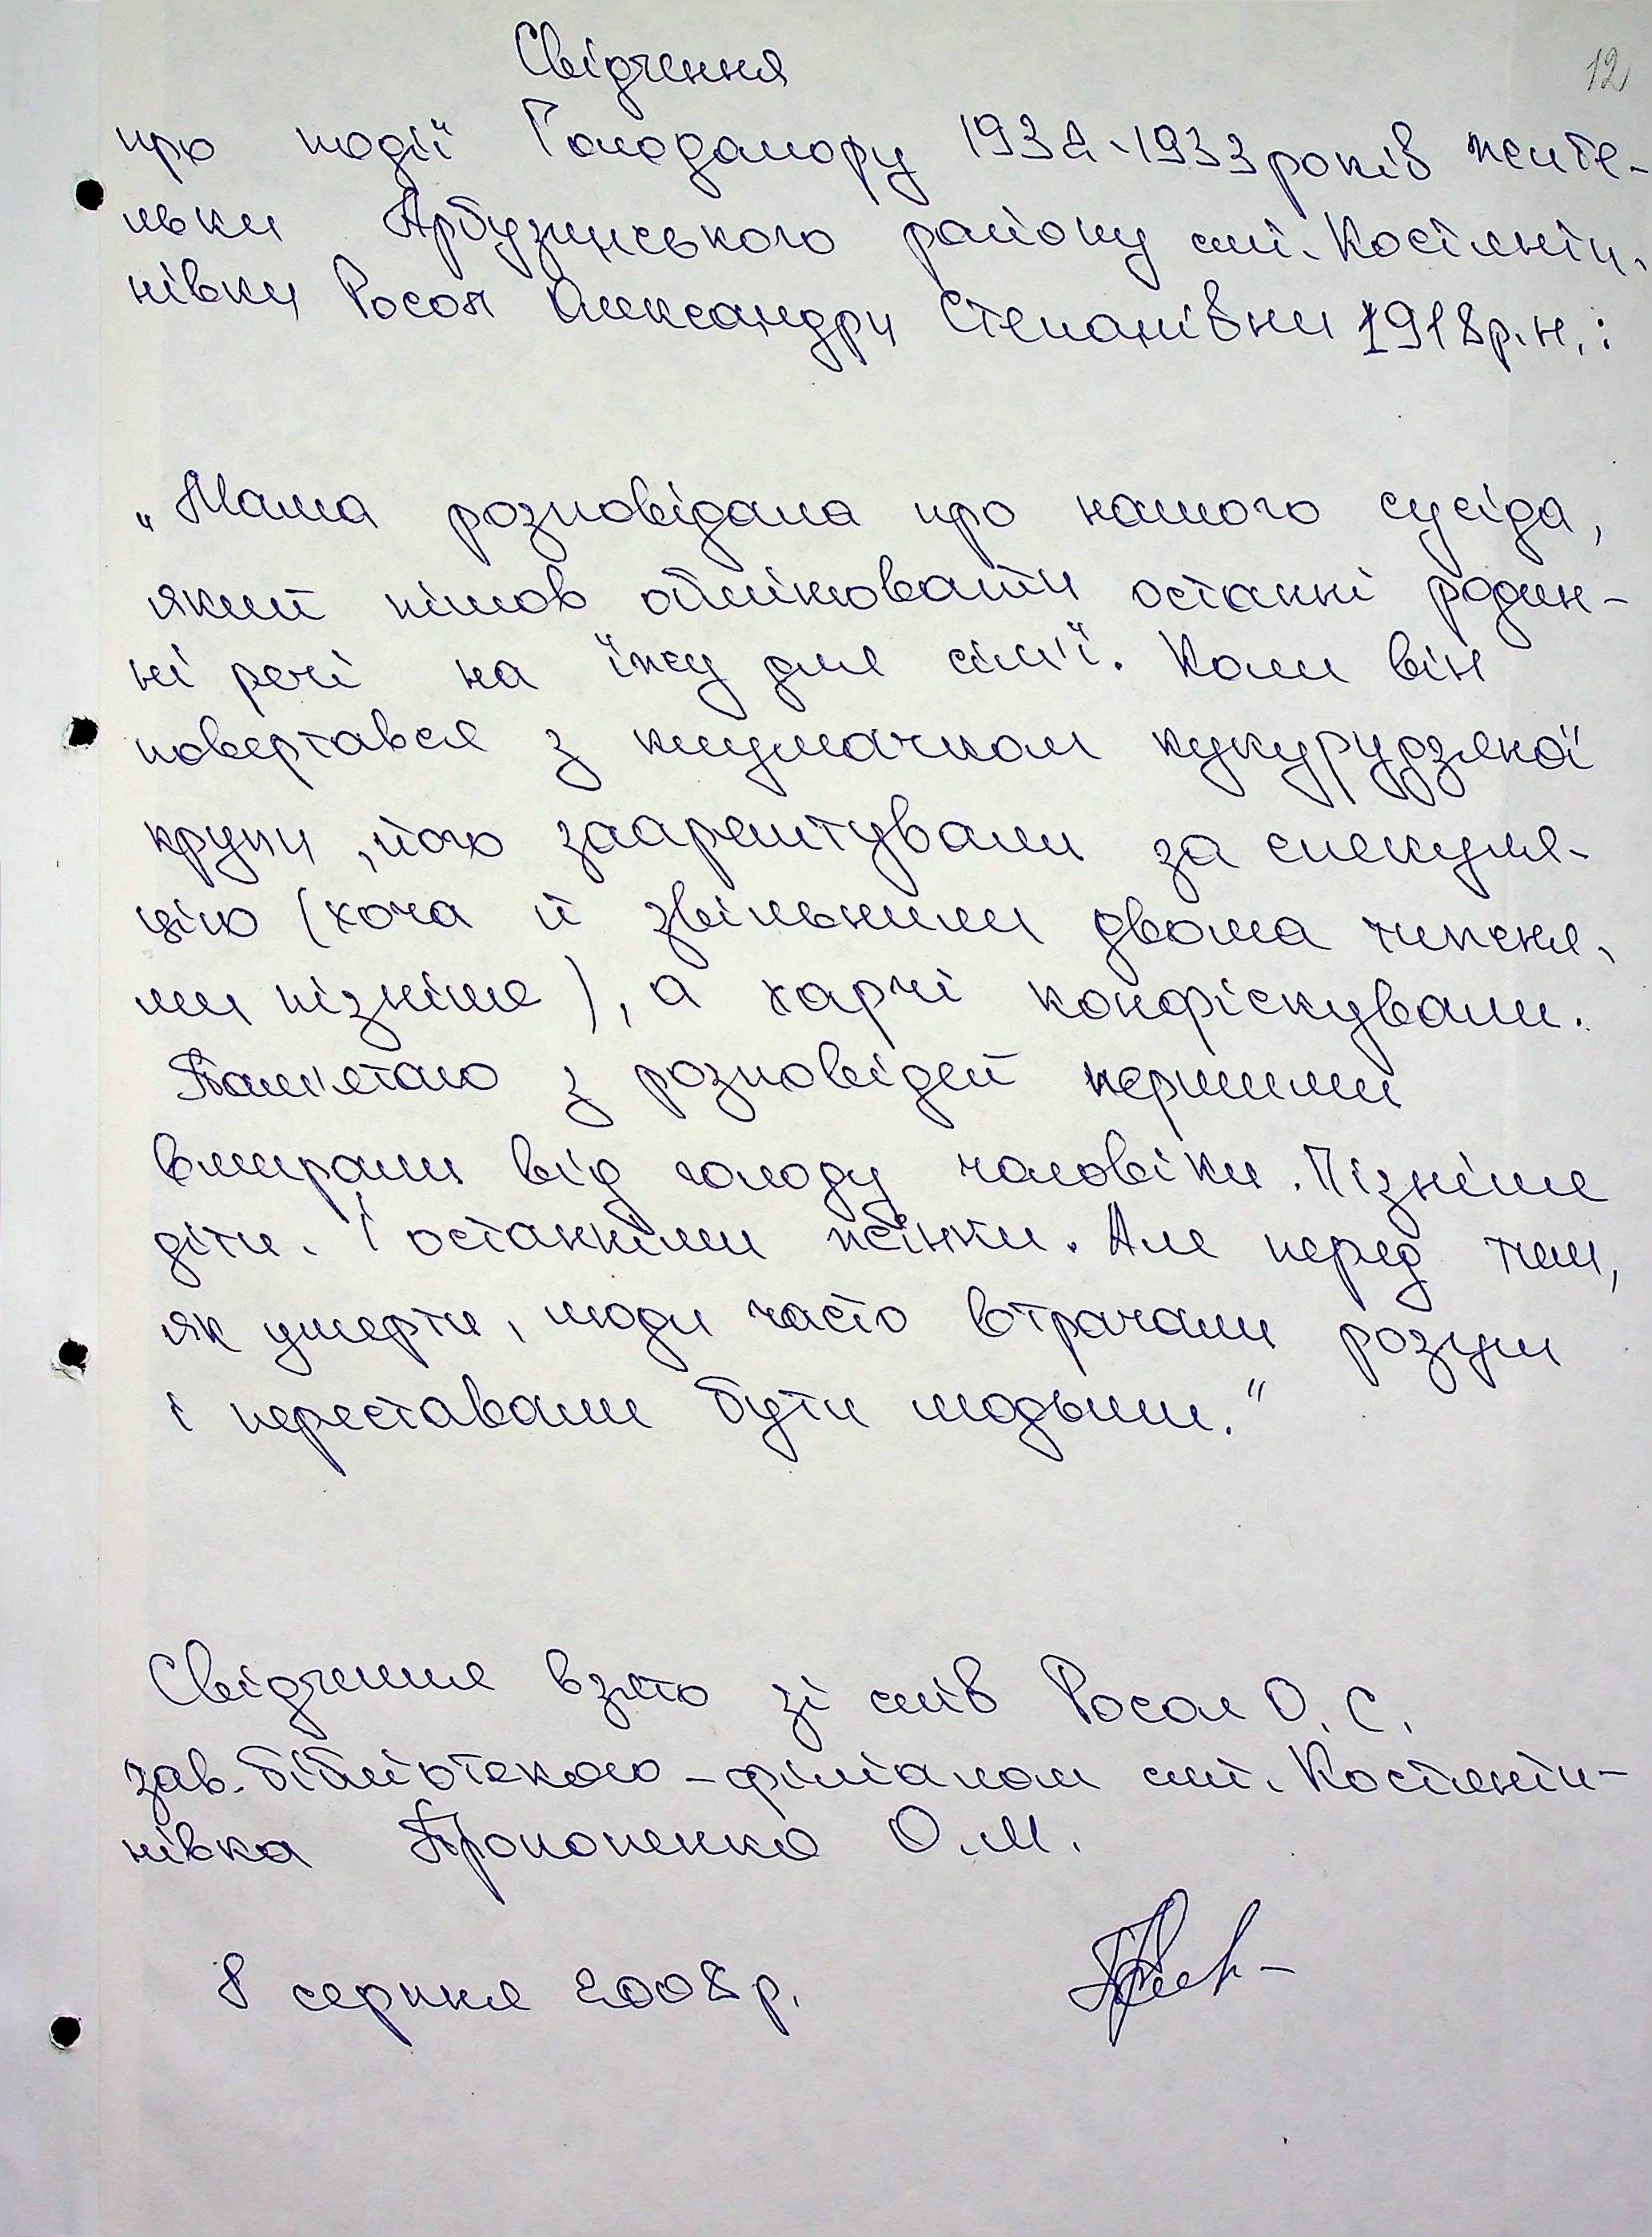 12
Свідчення
про події Голодомору 1932-1933 років жите-
льки Арбузинського району смт. Костянти-
нівки Росол Олександри Степанівни 1918р.н.:
„Мама розповідала про нашого сусіда,
який пішов обмінювати останні родин-
ні речі на їжу для сім'ї. Коли він
повертався з клумачком кукурудзяної
крупи, його заарештували за спекуля-
цію (хоча й звільнили двома тижня-
ми пізніше), а харчі конфіскували.
Пам'ятаю з розповідей першими
вмирали від голоду чоловіки. Пізніше
діти. І останніми жінки. Але перед тим,
як умерти, люди часто втрачали розум
і переставали бути людьми."
Свідчення взято зі слів Росол О.С.
зав. бібліотекою-філіалом смт. Костянти-
нівка Прокопенко О.М.
8 серпня 2008р.